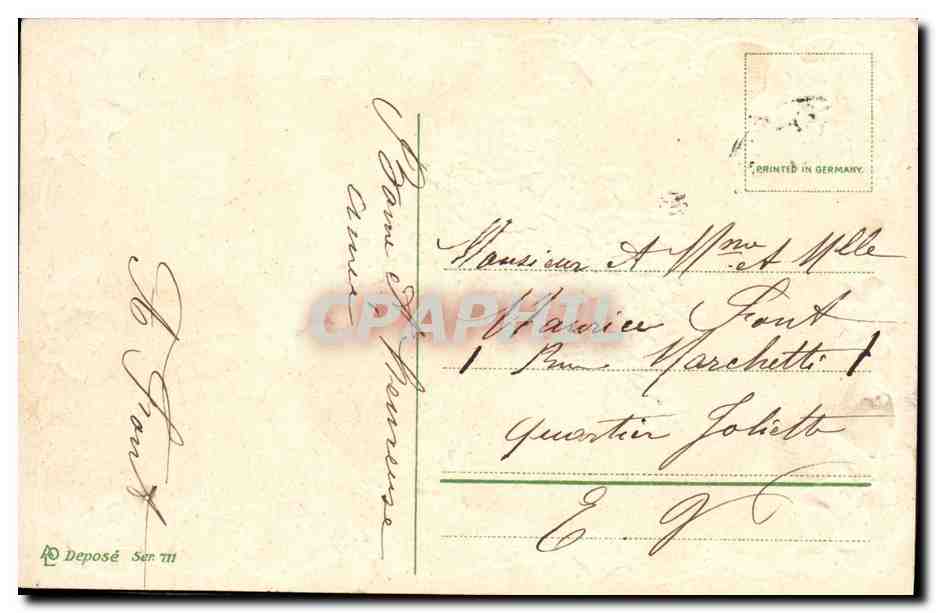 Bonne et heureuse
année
A Font
PRINTED IN GERMANY.
Monsieur et Mme et Mlle
Maurice Font
1 Rue Marchetti 1
quartier Joliette
E V
Deposé Ser. 711
CPAPHIL